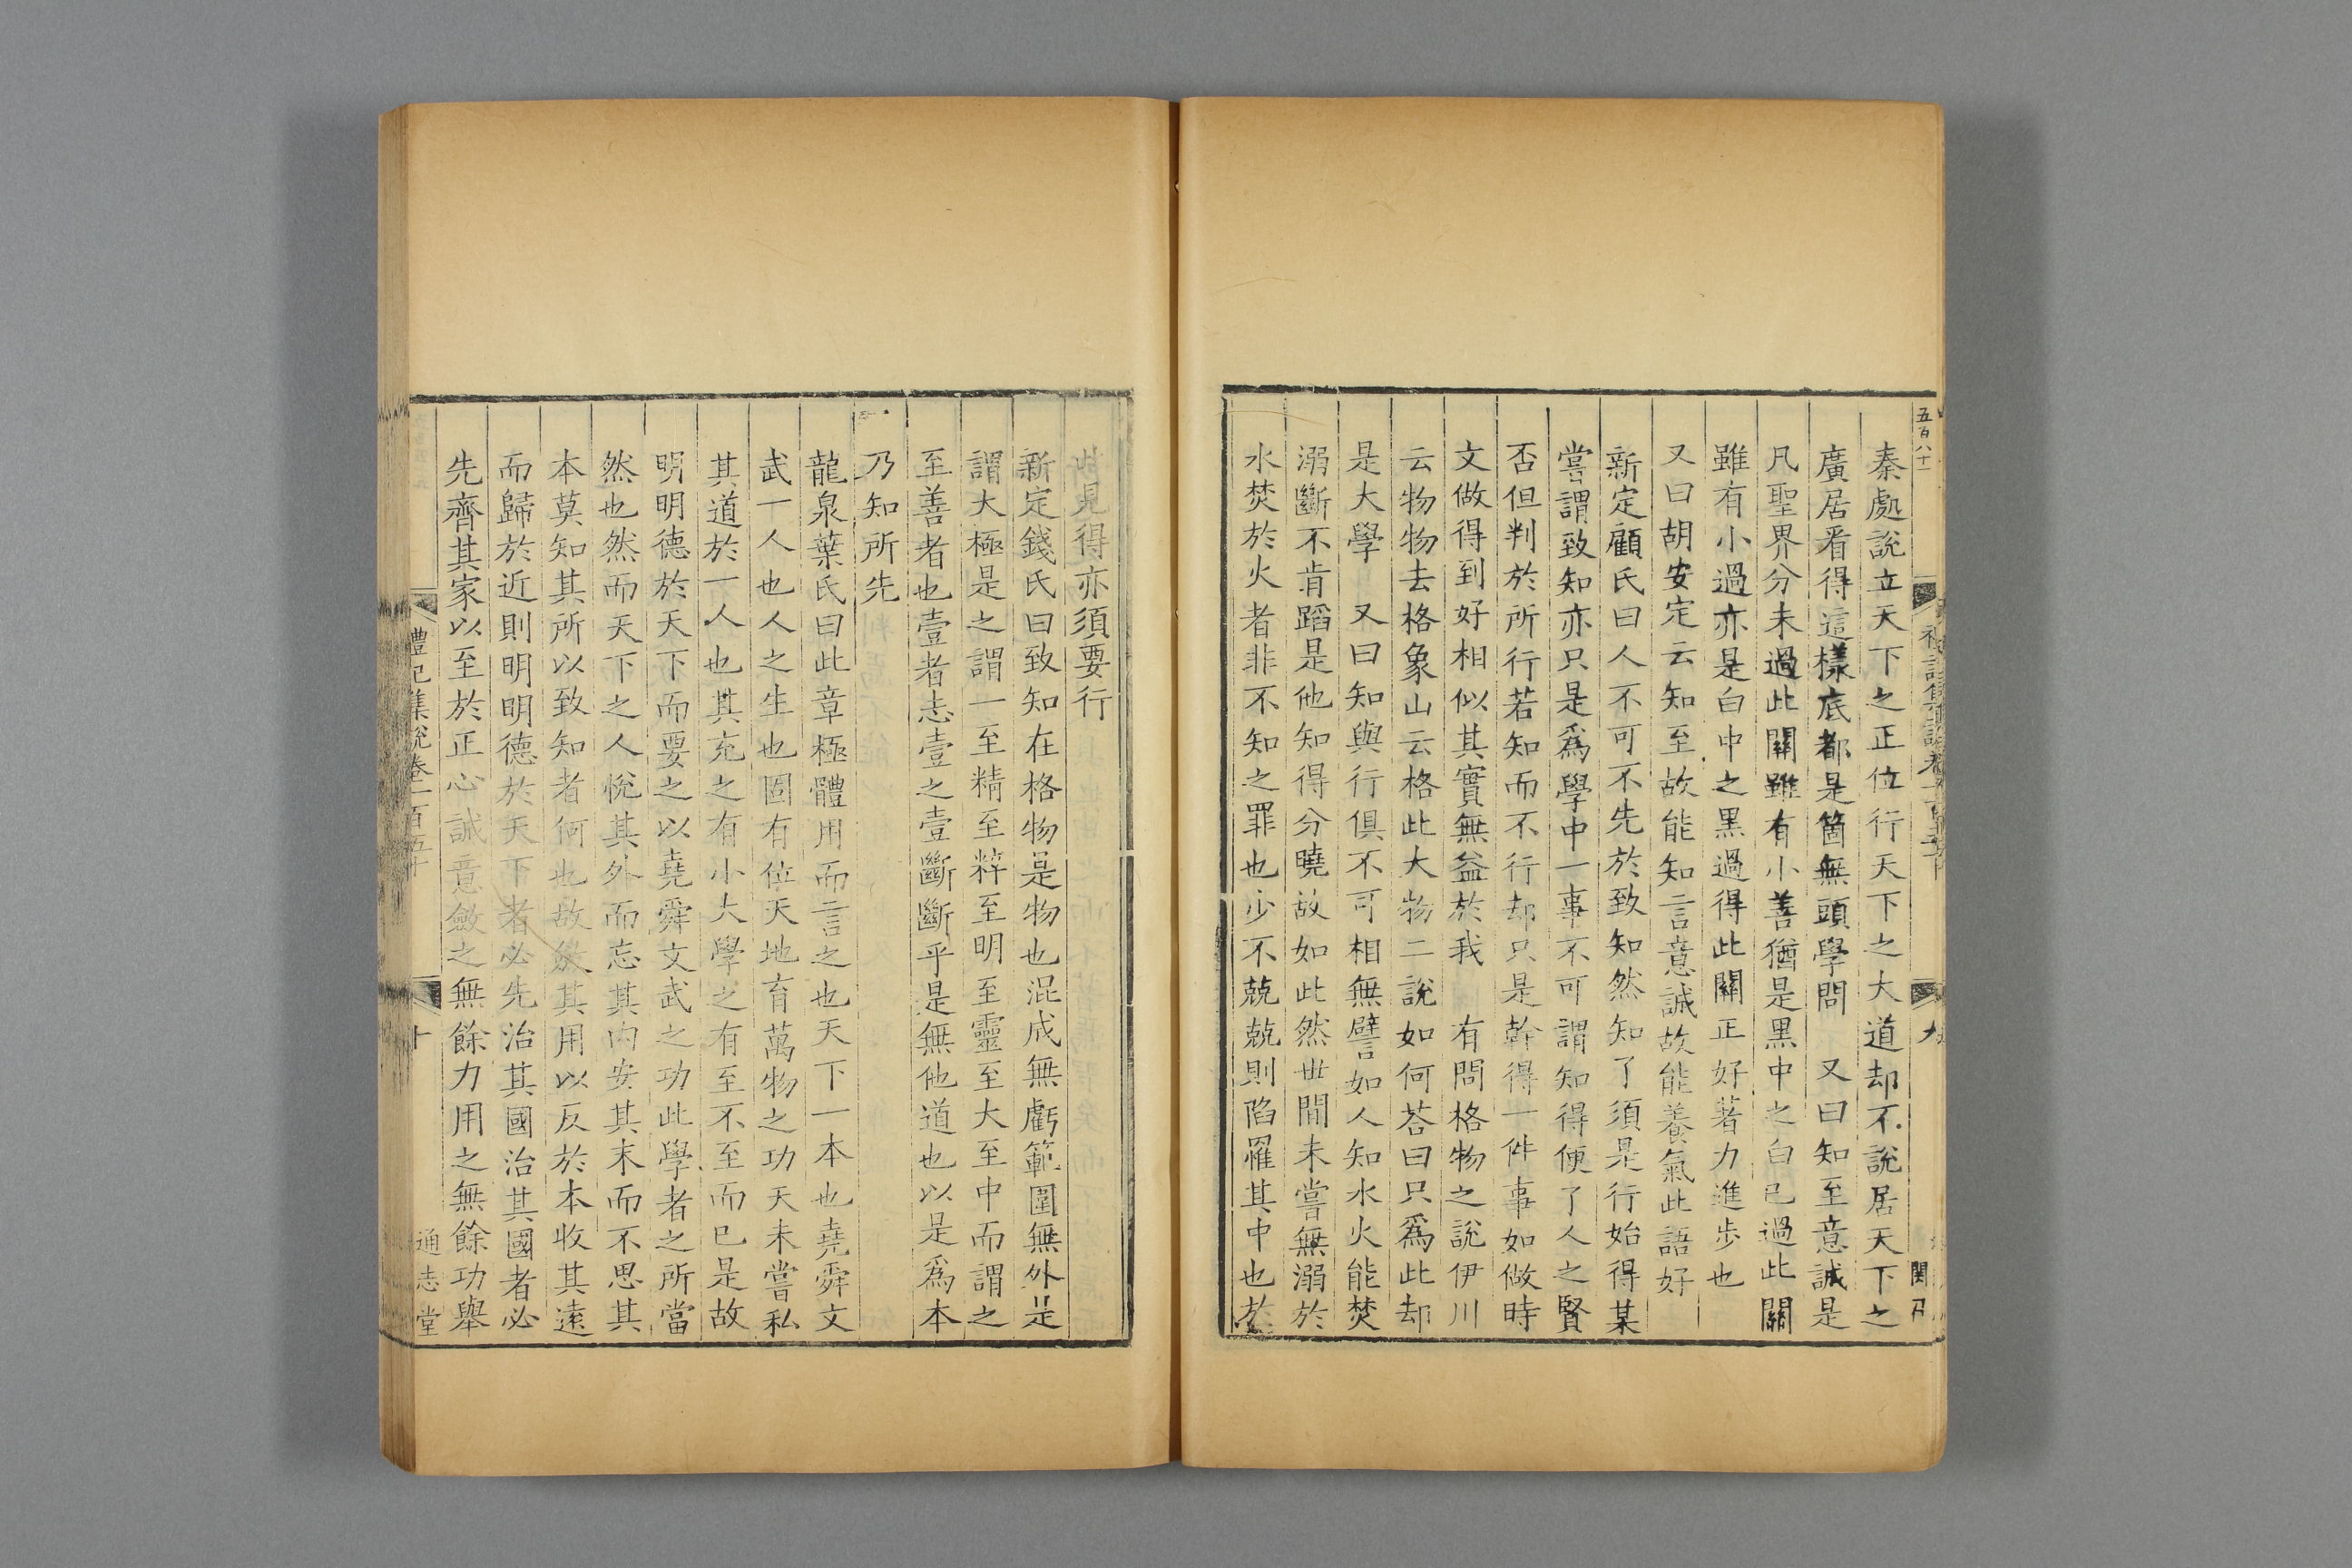 五百八十
秦處說立天下之正位行天下之大道却不說居天下之
廣居看得這樣底都是箇無頭學問　又曰知至意誠是
凡聖界分未過此關雖有小善猶是黑中之白已過此關
雖有小過亦是白中之黑過得此關正好著力進步也
又曰胡安定云知至故能知言意誠故能養氣此語好
新定顧氏曰人不可不先於致知然知了須是行始得某
嘗謂致知亦只是爲學中一事不可謂知得便了人之賢
否但判於所行若知而不行却只是幹得一件事如做時
文做得到好相似其實無益於我　有問格物之說伊川
云物物去格象山云格此大物二說如何荅曰只爲此却
是大學　又曰知與行俱不可相無譬如人知水火能焚
溺斷不肯蹈是他知得分曉故如此然世間未嘗無溺於
水焚於火者非不知之罪也少不兢兢則陷罹其中也於
此見得亦須要行
新定錢氏曰致知在格物是物也混成無虧範圍無外是
謂大極是之謂一至精至粹至明至靈至大至中而謂之
至善者也壹者志壹之壹斷斷乎是無他道也以是爲本
乃知所先
龍泉葉氏曰此章極體用而言之也天下一本也堯舜文
武一人也人之生也固有位天地育萬物之功天未嘗私
其道於一人也其充之有小大學之有至不至而已是故
明明德於天下而要之以堯舜文武之功此學者之所當
然也然而天下之人悅其外而忘其内安其末而不思其
本莫知其所以致知者何也故斂其用以反於本收其遠
而歸於近則明明德於天下者必先治其國治其國者必
先齊其家以至於正心誠意斂之無餘力用之無餘功舉
禮記集說卷一百五十
十
通志堂